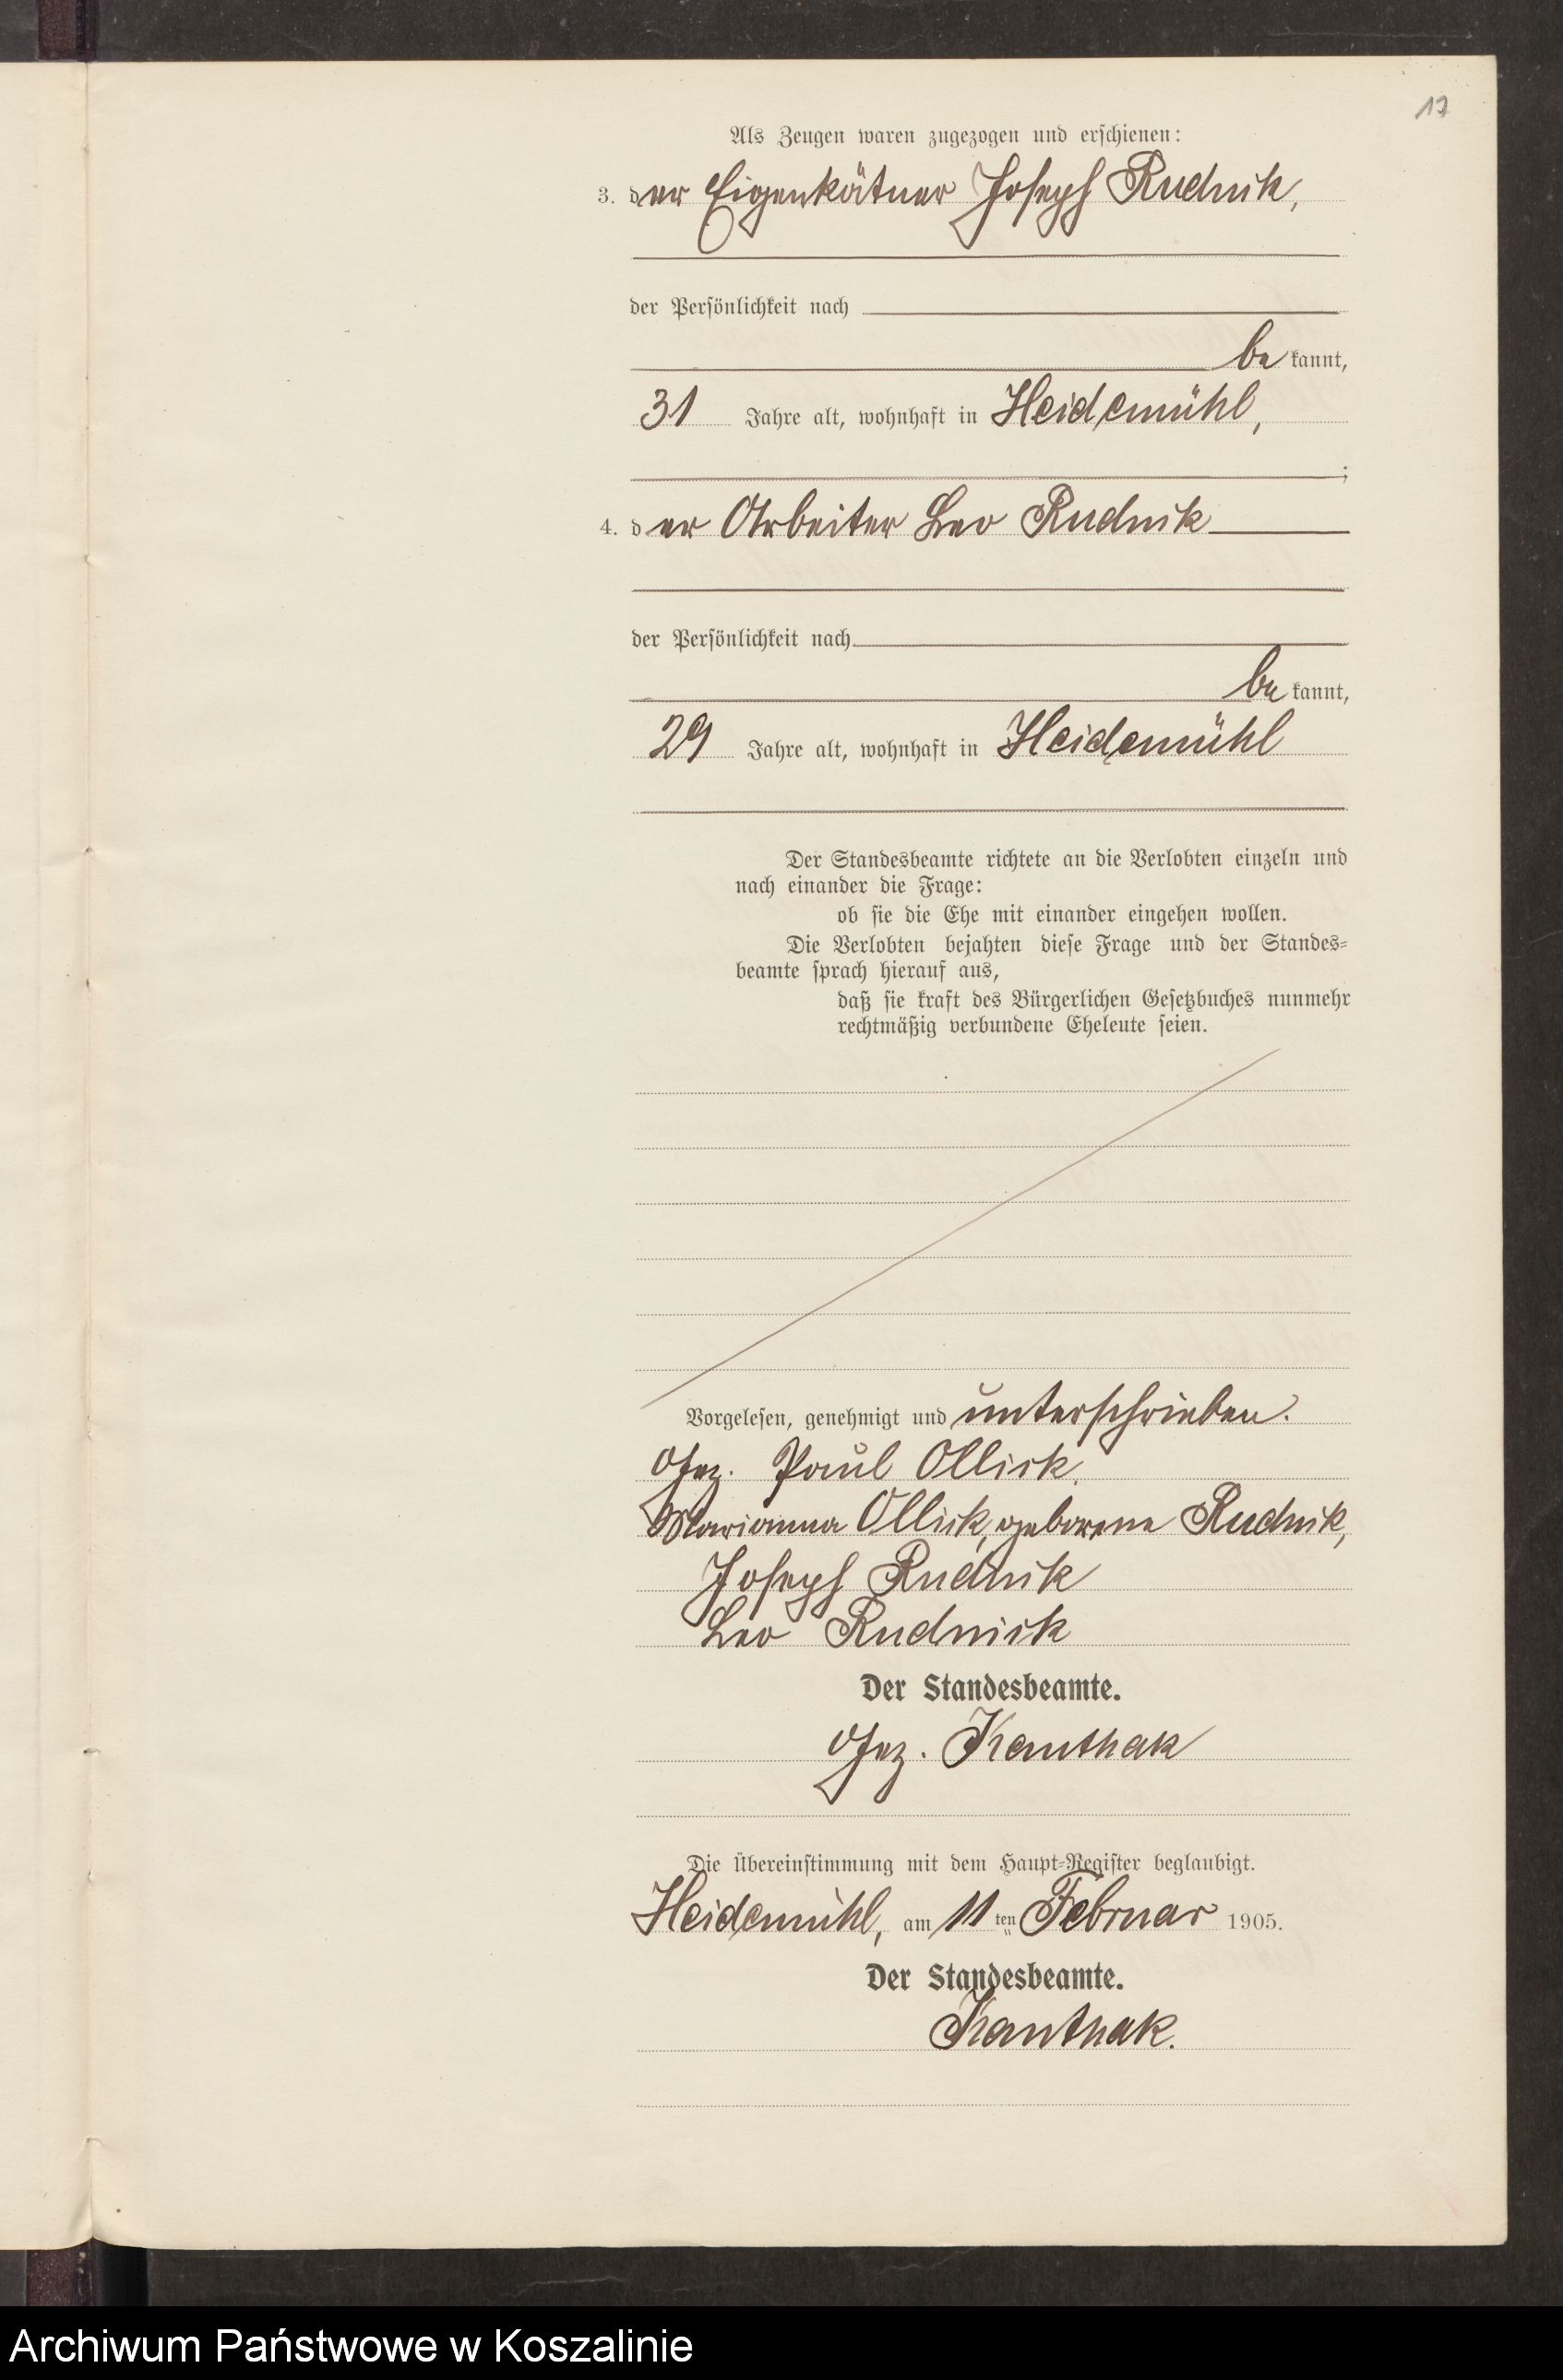 17
Als Zeugen waren zugezogen und erschienen:
3. der Eigenkätner Joseph Rudnik,
der Persönlichkeit nach
be kannt,
31 Jahre alt, wohnhaft in Heidemühl,
;
4. der Arbeiter Leo Rudnik
der Persönlichkeit nach
be kannt,
29 Jahre alt, wohnhaft in Heidemühl
Der Standesbeamte richtete an die Verlobten einzeln und
nach einander die Frage:
ob sie die Ehe mit einander eingehen wollen.
Die Verlobten bejahten diese Frage und der Standes-
beamte sprach hierauf aus,
daß sie kraft des Bürgerlichen Gesetzbuches nunmehr
rechtmäßig verbundene Eheleute seien.
Vorgelesen, genehmigt und unterschrieben.
Gez. Paul Ollick,
Marianna Ollick, geborene Rudnik,
Joseph Rudnik
Leo Rudnick
Der Standesbeamte.
Gez. Kanthak
Die Übereinstimmung mit dem Haupt-Register beglaubigt.
Heidemühl, am 11 ten Februar 1905.
Der Standesbeamte.
Kanthak.
Archiwum Państwowe w Koszalinie